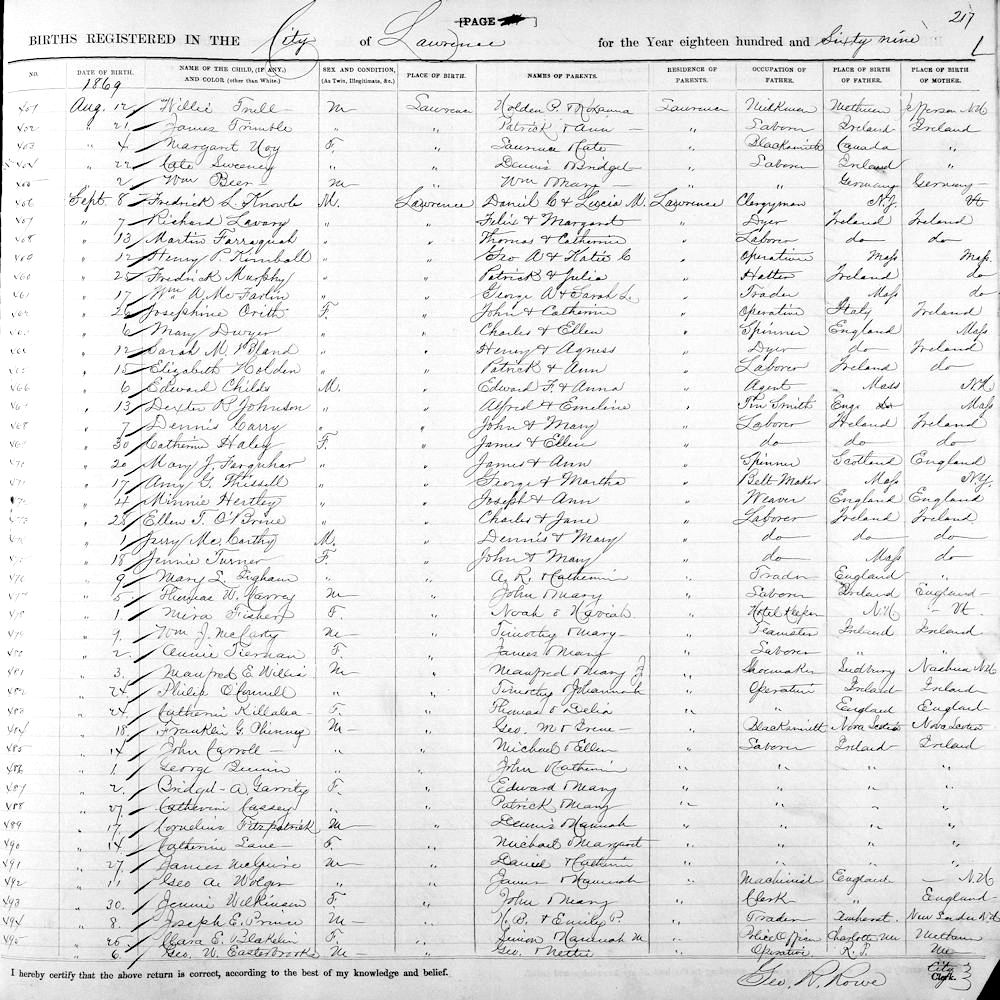 [PAGE ]
217
BIRTHS REGISTERED IN THE City of Lawrence for the Year eighteen hundred and Sixty nine
NO. DATE OF BIRTH. NAME OF THE CHILD, (IF ANY,) AND COLOR (other than White.) SEX AND CONDITION, (As Twin, Illegitimate, &c.) PLACE OF BIRTH. NAMES OF PARENTS. RESIDENCE OF PARENTS. OCCUPATION OF FATHER. PLACE OF BIRTH OF FATHER. PLACE OF BIRTH OF MOTHER.
1869
Aug. 12 Willie Lawrence Holden P. & Lawrence Milkman Methuen Jefferson N.H
402 " 21 James Trimble " " Patrick & Ann " Laborer Ireland Ireland
403 " 4 Margaret F. " & Kate " Blacksmith Canada "
404 " 22 Cate Sweeney " " Dennis & Bridget " Laborer Ireland "
" 2 Wm Beer M " Wm & Mary " " Germany Germany
Sept. 8 Fredrick L. Knowls M. Lawrence Daniel C & Lucia M. Lawrence Clergyman N.J. Vt
" 7 Richard Lavary " " Felix & Margaret " Dyer Ireland Ireland
" 13 Martin Farraquah " " Thomas & Catherine " Laborer do do
" 12 Henry P. Kimball " " Geo A & Katie C " Operative Mass Mass.
" 25 Fredrick Murphy " " Patrick & Julia " Hatter Ireland do
" 17 Wm A. McFarlin " " George A & Sarah L. " Trader Mass do
" 26 Josephine Orith F. " John & Catherine " Operative Italy Ireland
" 6 Mary Dwyer " " Charles & Ellen " Spinner England Mass
" 12 Sarah M. Bland " " Henry & Agness " Dyer do Ireland
" 15 Elizabeth Holden " " Patrick & Ann " Laborer Ireland do
466 " 6 Edward Childs M. " Edward F. & Anna " Agent Mass N.H
" 13 Dexter R. Johnson " " Alfred & Emeline " Tin Smith Eng. Mass
" 7 Dennis Carry " " John & Mary " Laborer Ireland Ireland
" 30 Catherine Haley F. " James & Ellen " do do do
" 20 Mary J. Farquhar " " James & Ann " Spinner Scotland England
" 17 Amy G. Thissell " " George & Martha " Belt Maker Mass N.Y.
" 4 Minnie Hertley " " Joseph & Ann " Weaver England England
" 28 Ellen T. O'Brine " " Charles & Jane " Laborer Ireland Ireland
" 1 Jerry Mc.Carthy M. " Dennis & Mary " do do do
" 18 Jennie Turner F. " John & Mary " do Mass do
" 9 Mary L. Ingham " " A. R. & Catherine " Trader England "
" 5 Thomas W. Harvey M " John & Mary " Laborer Ireland England
" 1 Mira Fisher F. " Noah & " Hotel Keeper N.H Vt.
" 9 Wm J. McCarty M " Timothy & Mary " Teamster Ireland Ireland
" 2 Annie Tiernan F. " James & Mary " Laborer " "
481 " 3 Manfred E. Willis M " Manfred & Mary J " Shoemaker Sudbury Nashua N.H
" 24 Philip O'Connell " " Timothy & Hannah " Operative Ireland Ireland
" 24 Catherine Killalea F. " Thomas & Delia " " England England
484 " 18 Franklin G. Phinney M " Geo. M & Irene " Blacksmith Nova Scotia Nova Scotia
485 " 14 John Carroll " " Michael & Ellen " Laborer Ireland Ireland
486 " 1 George " " John & Catherine " " " "
487 " 2 Bridget A. Garrity F. " Edward & Mary " " " "
488 " 27 Catherine Cassey " " Patrick & Mary " " " "
489 " 17 Cornelius Fitzpatrick M " Dennis & Hannah " " " "
490 " 14 Catherine Lane F. " Michael & Margaret " " " "
491 " 27 James McGuire M " Daniel & Catherine " " " "
492 " 11 Geo A. Wolger " " James & Hannah " Machinist England N.H
493 " 30 Jennie Wilkinson F. " John & Mary " Clerk " England
494 " 8 Joseph E. Prince M " H. B. & Emily P. " Trader Amherst New London N.H
495 " 26 Clara E. Blakelin F. " Simon & Hannah M " Police Officer Charlotte Me Methuen
" 6 Geo. W. Easterbrooks M " Geo. & Nettie " Operative R.I. Me
I hereby certify that the above return is correct, according to the best of my knowledge and belief.
Geo. R. Rowe City Clerk.